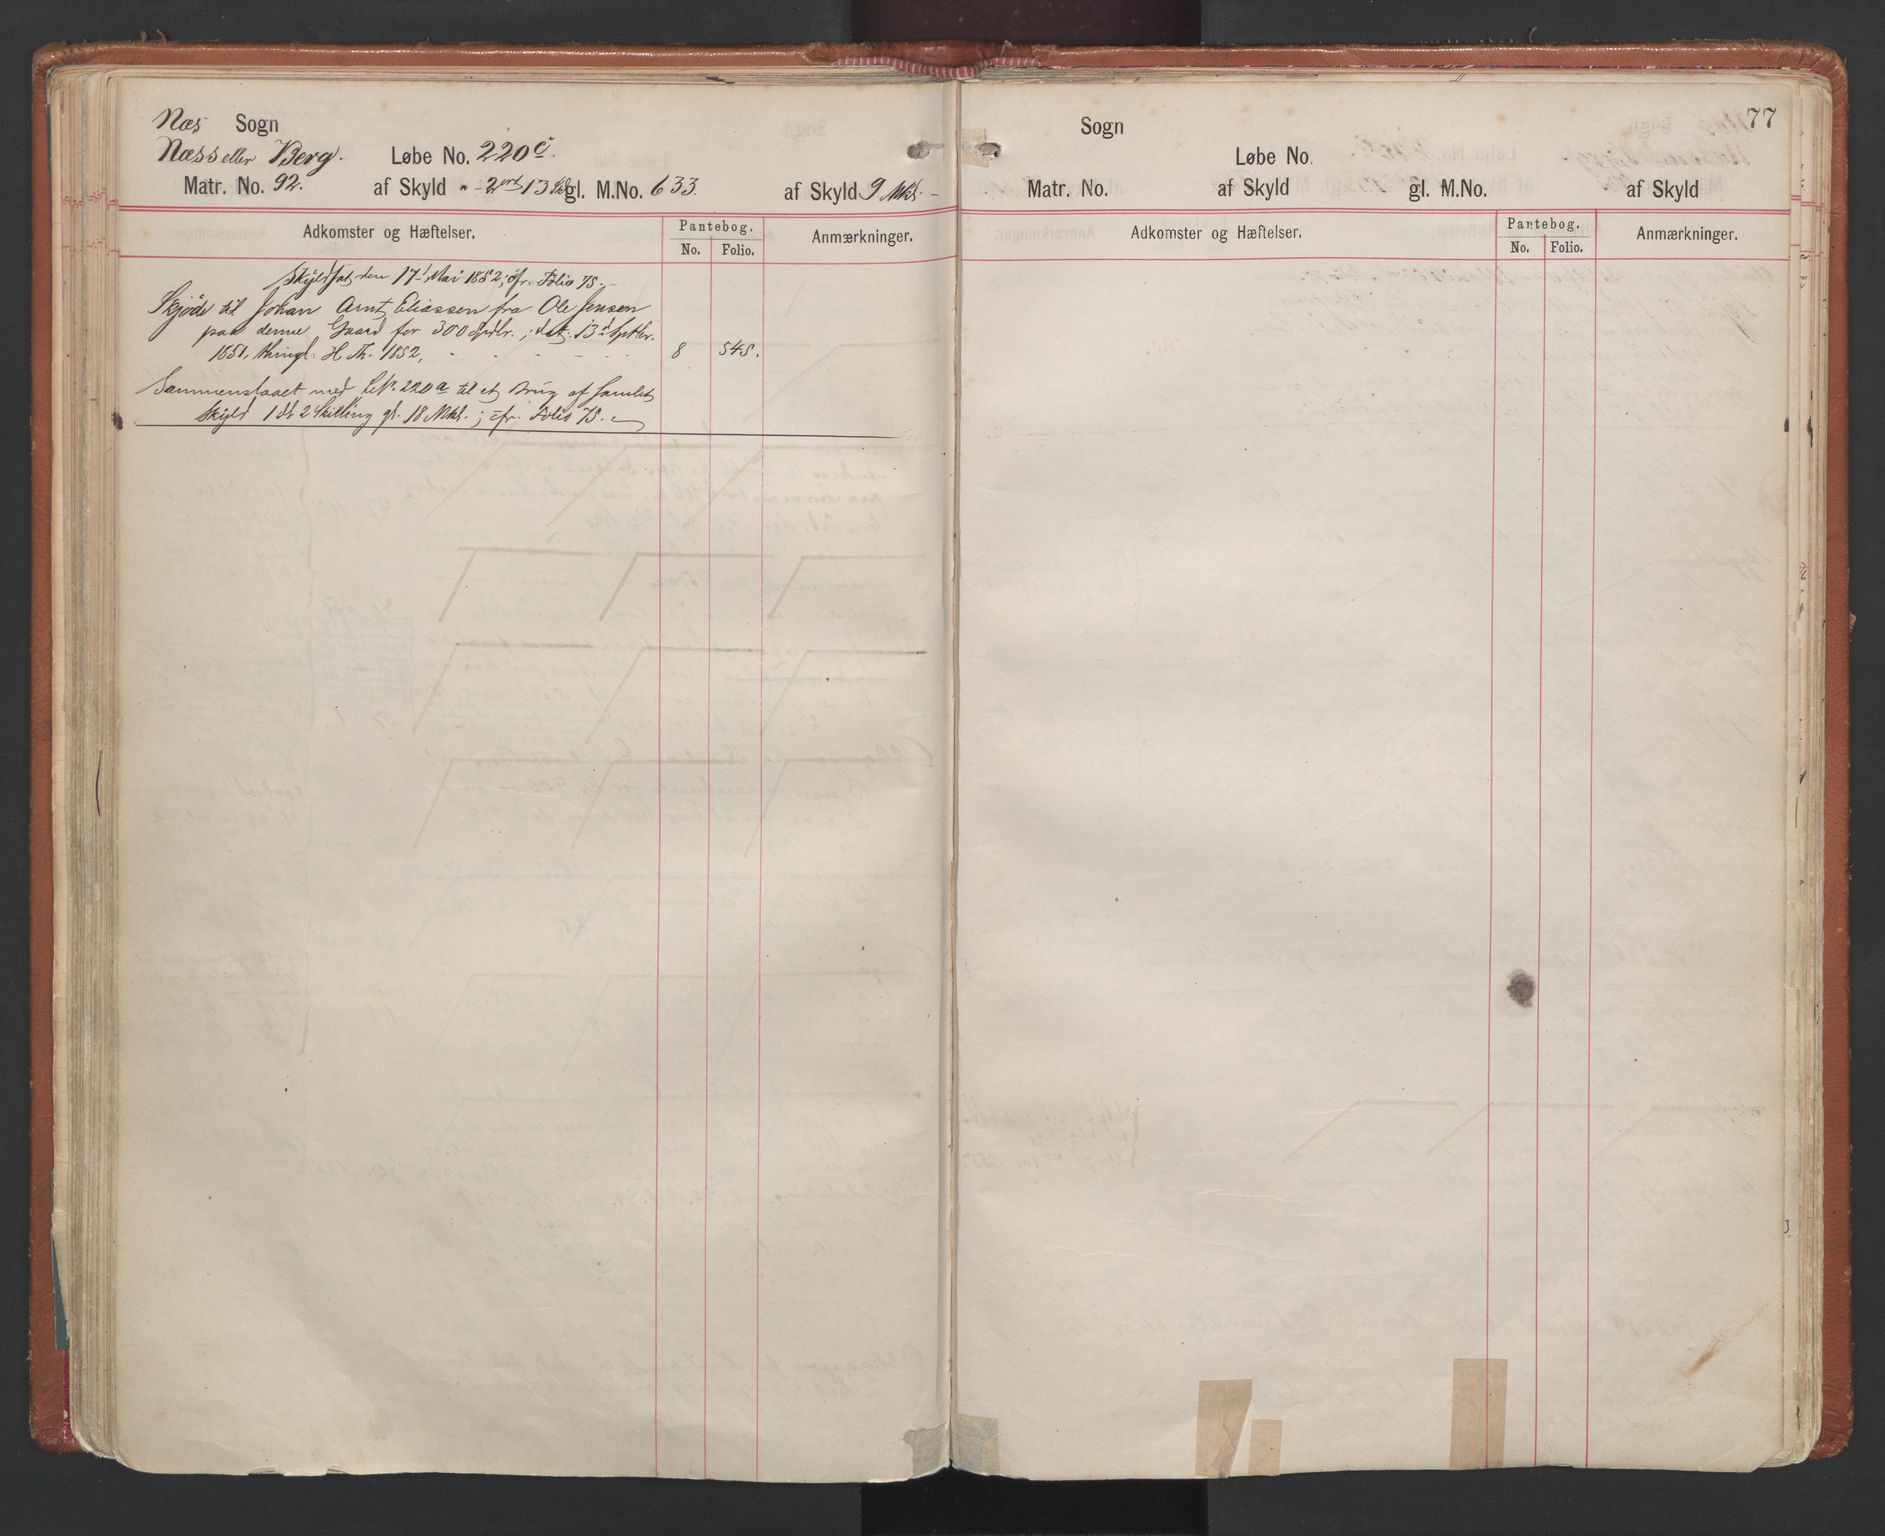 Næs Sogn
Næss eller Berg. Løbe No. 220c.
Matr. No. 92. af Skyld " - 2 ort 13 Sk gl. M.No. 633. af Skyld 9 Mkl. -
Adkomster og Hæftelser. Pantebog. Anmærkninger.
No. Folio.
Skyldsat den 17d Mai 1852, cfr. Folio 75. -
Skjøde til Johan Arnt Eliassen fra Ole Jensen
paa denne Gaard for 300 Spdlr.; dat. 13d Sptbr.
1851, thingl. H. Th. 1852, 8 545.
Sammenslaaet med L.N. 220a til et Brug af samlet
Skyld 1 d 2 Skilling gl. 18 Mkl.; cfr. Folio 75.
77
Sogn
Løbe No.
Matr. No. af Skyld gl. M.No. af Skyld
Adkomster og Hæftelser. Pantebog. Anmærkninger.
No. Folio.